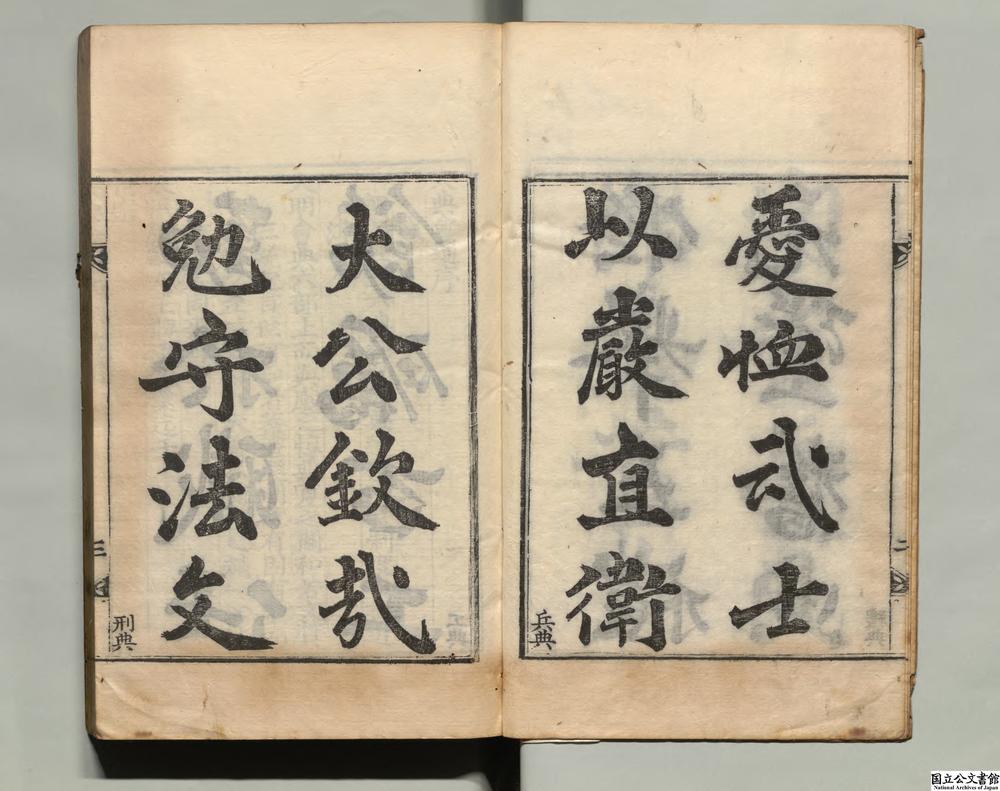 愛恤武士
以嚴直衛
兵典
大公欽哉
勉守法文
刑典
三
二
国立公文書館
National Archives of Japan